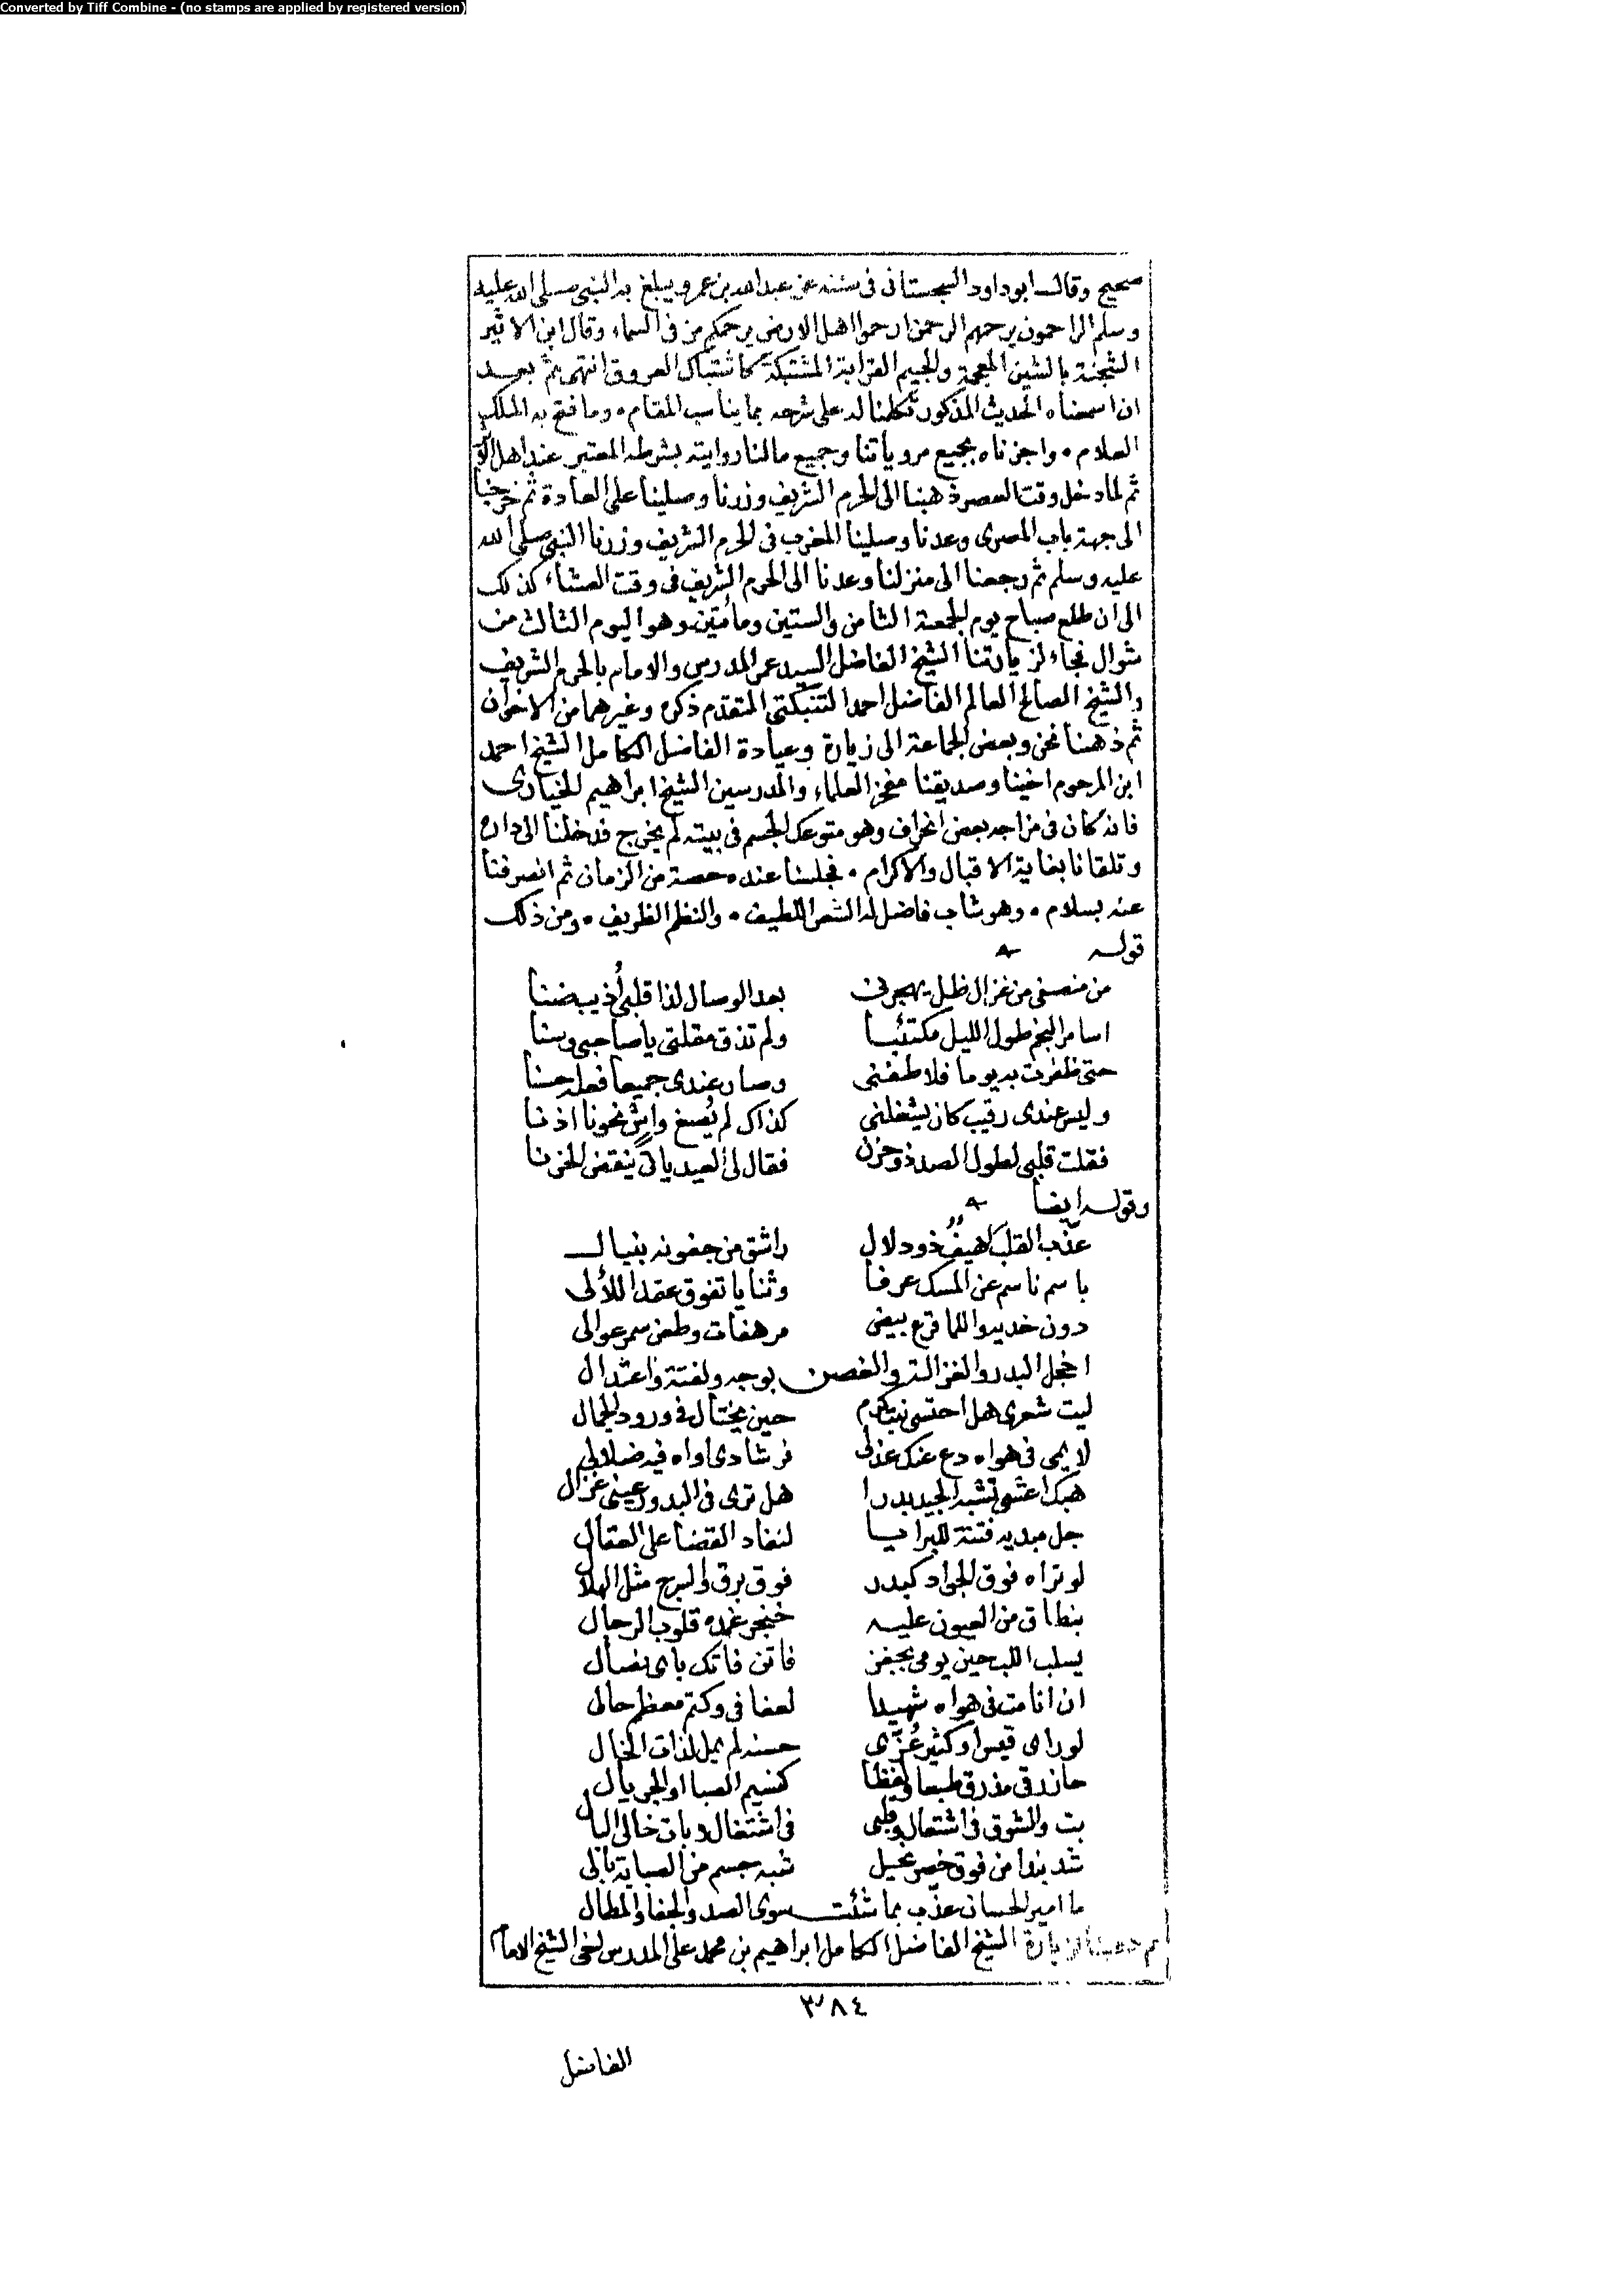 Converted by Tiff Combine - (no stamps are applied by registered version)
صحيح وقال ابو داود السجستانى فى سننه عن عبد الله بن عمرو يبلغ به النبى صلى الله عليه
وسلم الراحمون يرحمهم الرحمن ارحموا اهل الارض يرحمكم من فى السماء وقال ابن الاثير
الشجنة بالشين المعجمة والجيم القرابة المشتبكة كاشتباك العروق انتهى ثم بعد
ان اسمعناه الحديث المذكور تكلمنا له على شرحه بما يناسب المقام • وما فتح به الملك
العلام • واجزناه بجميع مروياتنا وجميع ما لنا روايته بشرطه المعتبر عند اهل
ثم لما دخل وقت العصر ذهبنا الى الحرم الشريف وزرنا وصلينا على العادة ثم خرجنا
الى جهة باب المصرى وعدنا وصلينا المغرب فى الحرم الشريف وزرنا النبى صلى الله
عليه وسلم ثم رجعنا الى منزلنا وعدنا الى الحرم الشريف فى وقت العشاء كذلك
الى ان طلع صباح يوم الجمعة الثامن والستين ومأتين وهو اليوم الثالث من
شوال فجاء لزيارتنا الشيخ الفاضل السيد عمر المدرس والامام بالحرم الشريف
والشيخ الصالح العالم الفاضل احمد التنبكتى المتقدم ذكره وغيرهما من الاخوان
ثم ذهبنا نحن وبعض الجماعة الى زيارة وعيادة الفاضل الكامل الشيخ احمد
ابن المرحوم اخينا وصديقنا مفخر العلماء والمدرسين الشيخ ابراهيم الخيارى
فانه كان فى مزاجه بعض انحراف وهو متوعك الجسم فى بيته لم يخرج فدخلنا الى داره
وتلقانا بغاية الاقبال والاكرام • فجلسنا عنده حصة من الزمان ثم انصرفنا
عنه بسلام • وهو شاب فاضل له الشعر اللطيف • والنظم الظريف • ومن ذلك
قوله
من منصفى من غزال ظل يهجرنى بعد الوصال لذا قلبى أذيب ضنا
اسامر النجم طول الليل مكتئبا ولم تذق مقلتى يا صاحبى وسنا
حتى ظفرت به يوما فلاطفنى وصار عندى جميعا فعله حسنا
وليس عندى رقيب كان يشغلنى كذاك لم يُصغ واشٍ نحونا اذنا
فقلت قلبى لطول الصد ذو حزن فقال لى العيد ياتى ينقض الحزنا
وقوله ايضا
عذّب القلب اهيفٌ ذو دلال راشق من جفونه بنبال
باسم ناسم عن المسك عرفا وثنايا تفوق عقد اللألى
دون خديه واللما قرع بيض مرهفات وطعن سمر عوالى
اخجل البدر والغزالة والغصن بوجه ولفتة واعتدال
ليت شعرى هل احتسى حين يختال فى ورود الجمال
لايمى فى هواه دع عنك عذلى فرشادى اراه فيه ضلالى
هبك اعشى تشبه الجيد بدرا هل ترى فى البدور عينى غزال
جل مبديه فتنة للبرايا لنفاد القضا على العقال
لو تراه فوق الجواد كبدر فوق برق والسرج مثل الهلال
بنطاق من العيون عليه خنجر غمده قلوب الرجال
يسلب اللب حين يومى بجفن فاتن فاتك باى نصال
ان انا مت فى هواه شهيدا لعفافى وكتم معظم حالى
لو راى قيس او كثير عُزّى حسنه لم يمل لذات الخال
حاز رقى مذ رق طبعا ولفظا كنسيم الصبا او الجريال
بت والشوق فى اشتعال وقلبى فى اشتغال وبات خالى البال
شد بندا من فوق خصر نحيل شبه جسم من الصبابة بالى
يا امير الحسان عذّب بما شئت سوى الصد والجفا والمطال
ثم ذهبنا لزيارة الشيخ الفاضل الكامل ابراهيم بن محمد على المدرس اخى الشيخ الامام
٣٨٤
الفاضل